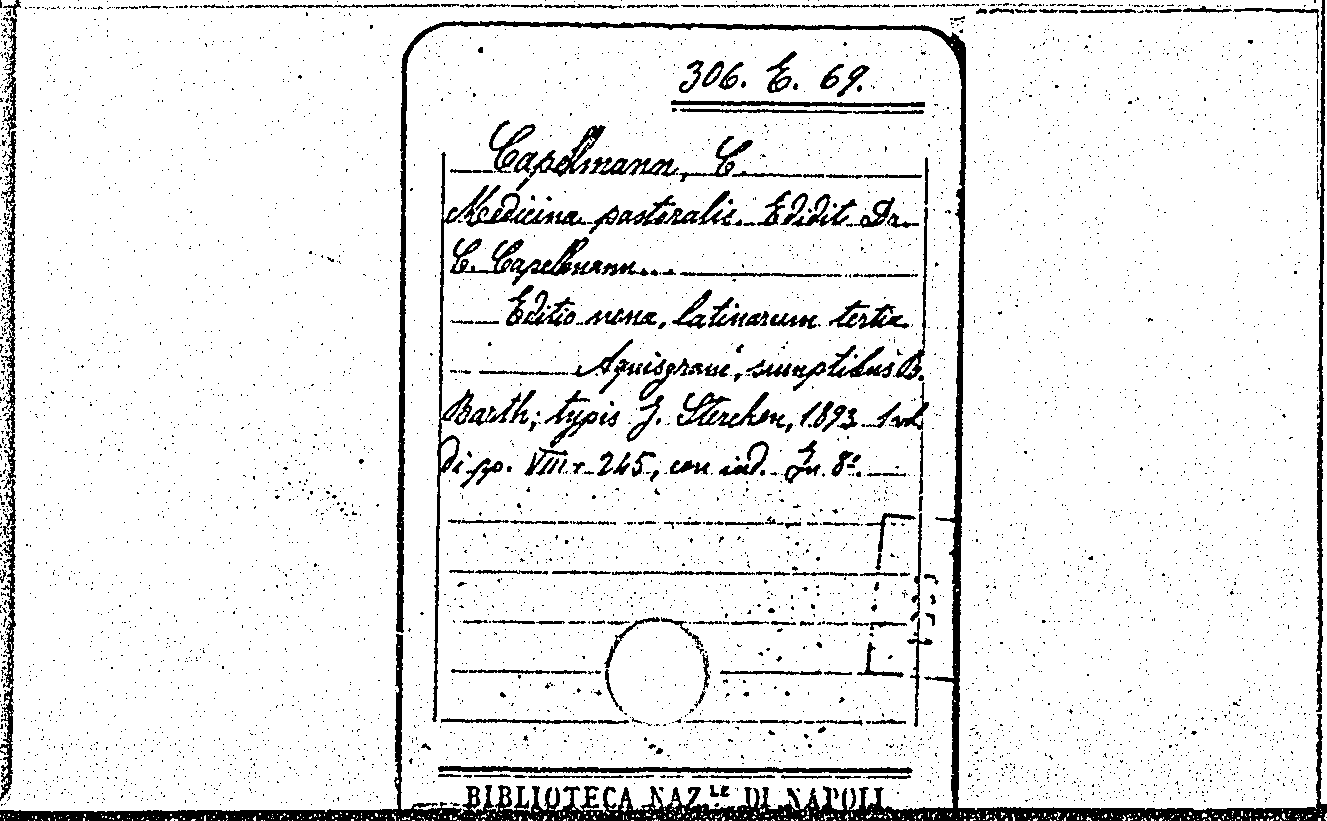 306. E. 69.
Capellmann, C.
Medicina pastoralis. Edidit Dr.
C. Capellmann...
Editio nona, latinarum tertia.
Aquisgrani, sumptibus B.
Barth; typis J. Sterchen, 1893. 1 vol
di pp. VIII + 245, con ind. In 8º.
BIBLIOTECA NAZ.LE DI NAPOLI